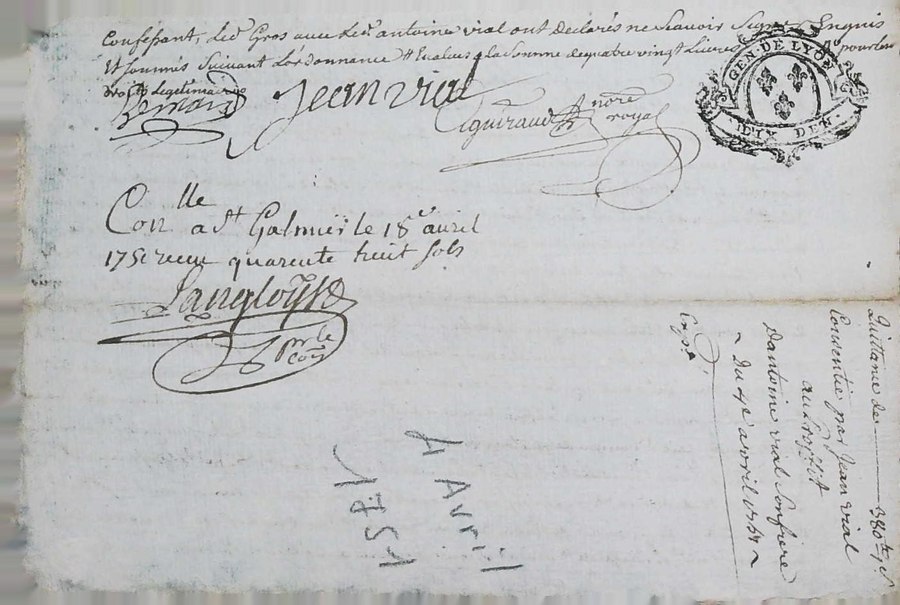 Confessant, led. Gros avec led. antoine vial ont declarés ne scavoir signer Enquis
Et sommés suivant L'ordonnance Et Evalué a la somme de quatre vingt Livres pour les
droits Legitimaires
Jean vial
Guiraud nore royal
GEN · DE LYON
DIX DEN ·
Con lle a St Galmier le 18e avril
1751 receu quarente huit sols
Langlois
pr le con
Quittance de
Consentie par Jean vial
au proffit
D'antoine vial son frere
Du 4e avril 1751
4 Avril
1751